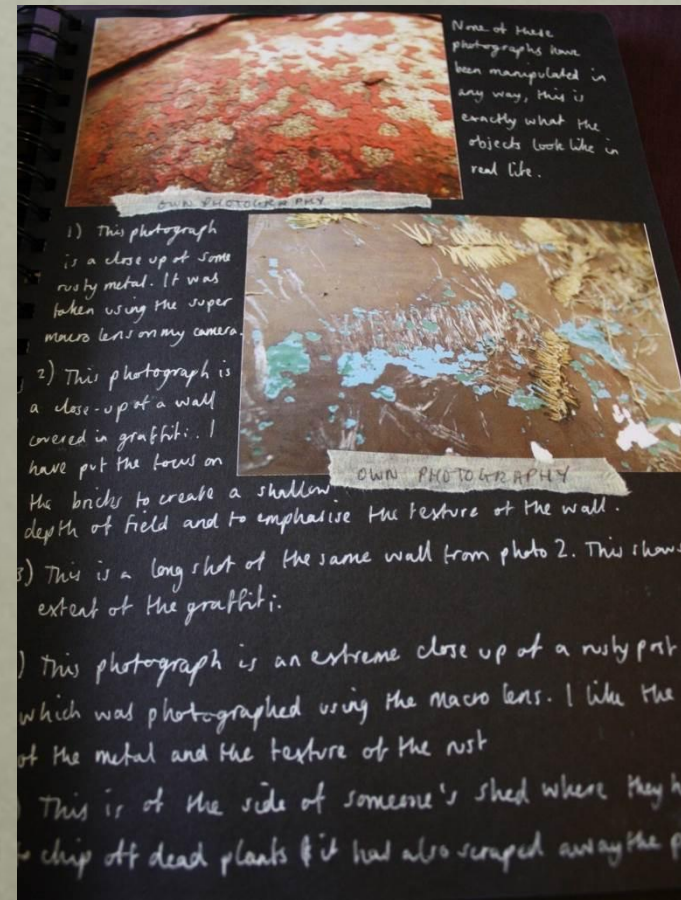 None of these
photographs have
been manipulated in
any way, this is
exactly what the
objects look like in
real life.
OWN PHOTOGRAPHY
1) This photograph
is a close up of some
rusty metal. It was
taken using the super
macro lens on my camera.
2) This photograph is
a close-up of a wall
covered in graffiti. I
have put the focus on
OWN PHOTOGRAPHY
the bricks to create a shallow
depth of field and to emphasise the texture of the wall.
3) This is a long shot of the same wall from photo 2. This shows
extent of the graffiti.
) This photograph is an extreme close up of a rusty post
which was photographed using the macro lens. I like the
of the metal and the texture of the rust
) This is of the side of someone's shed where they h
to chip off dead plants & it had also scraped away the p